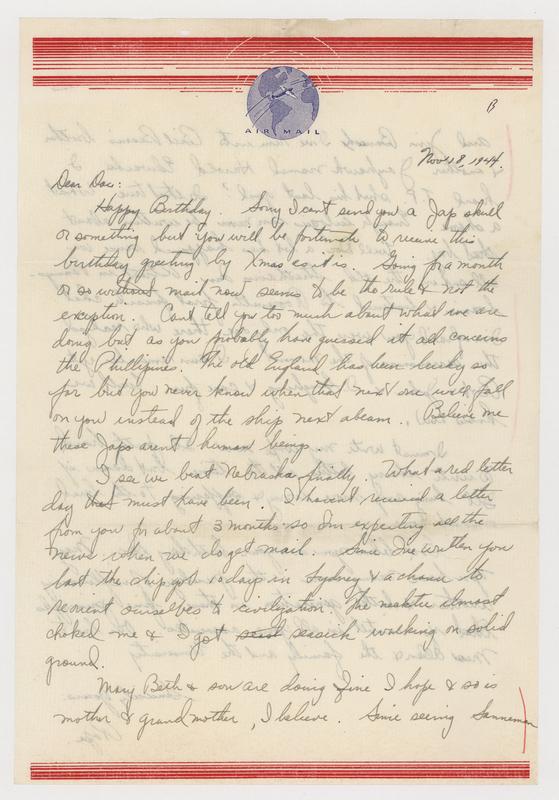 AIR MAIL
B
Nov 18, 1944.
Dear Doc:
Happy Birthday. Sorry I can't send you a Jap skull
or something but you will be fortunate to receive this
birthday greeting by Xmas as it is. Going for a month
or so without mail now seems to be the rule & not the
exception. Can't tell you too much about what we are
doing but as you probably have guessed it all concerns
the Phillipines. The old England has been lucky so
far but you never know when that next one will fall
on you instead of the ship next abeam. Believe me
these Japs aren't human beings.
I see we beat Nebraska finally. What a red letter
day that must have been. I haven't received a letter
from you for about 3 months so I'm expecting all the
news when we do get mail. Since I've written you
last the ship got 10 days in Sydney & a chance to
reorient ourselves to civilization. The almost
choked me & I got seasick walking on solid
ground.
Mary Beth & son are doing fine I hope & so is
mother & grandmother, I believe. Since seeing Sanneman